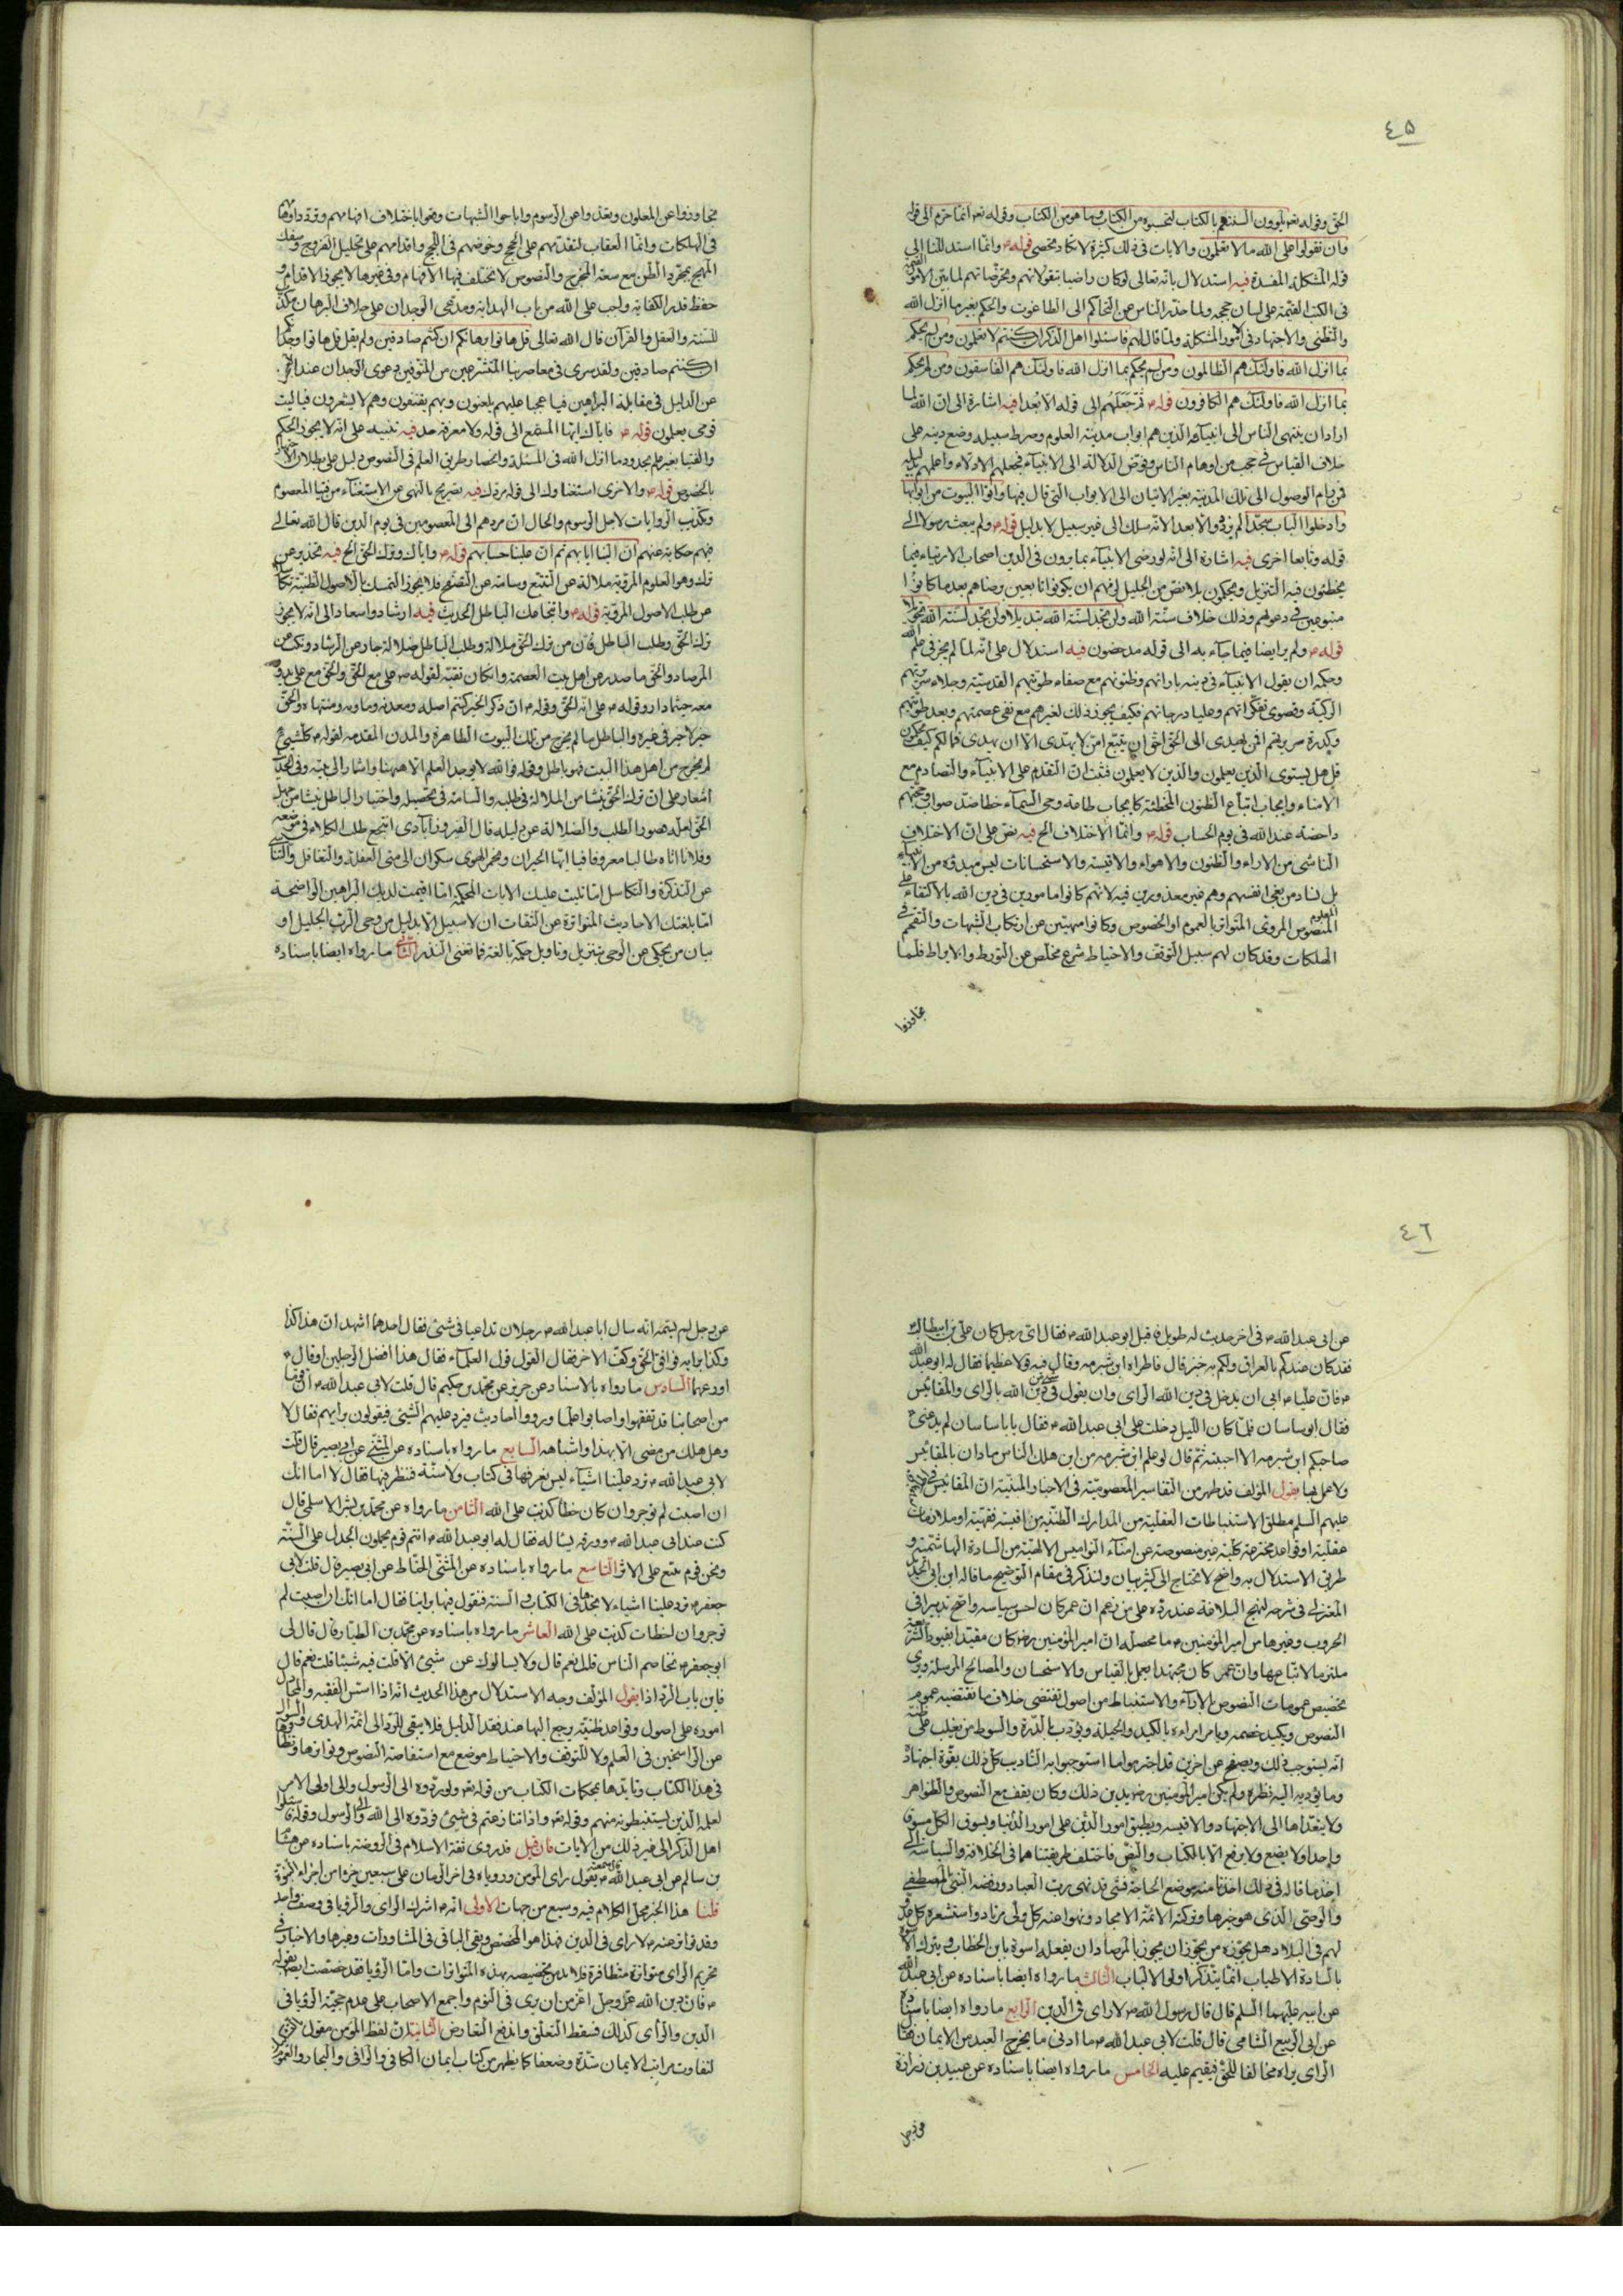 ٤٥
الحق وقوله تعم يلوون السنتهم بالكتاب لتحسبوه من الكتاب وما هو من الكتاب وقوله تعم انما حرم الى قوله
وان تقولوا على الله ما لا تعلمون والايات فى ذلك كثيرة لا تكاد تحصى قوله م وانما استدللنا الى
قوله المشكلة المفسدة فيه استدلال بانه تعالى لو كان راضيا بتقولاتهم وتخرصاتهم لما بين الامور
فى الكتب القيمة على لسان حججه ولما حذر الناس عن التحاكم الى الطاغوت والحكم بغير ما انزل الله
والتظنى والاجتهاد فى الامور المشكلة ولما قال لهم فاسئلوا اهل الذكر ان كنتم لا تعلمون ومن لم يحكم
بما انزل الله فاولئك هم الظالمون ومن لم يحكم بما انزل الله فاولئك هم الفاسقون ومن لم يحكم
بما انزل الله فاولئك هم الكافرون قوله م ثم جعلهم الى قوله الا بعدا فيه اشارة الى ان الله لما
اراد ان ينتهى الناس الى انبيائه الذين هم ابواب مدينة العلوم وصرط سبيله وضع دينه على
خلاف القياس فى حجب من اوهام الناس وفوض الدلالة الى الانبياء فجعلهم الادلاء واهلهم
فمن رام الوصول الى تلك المدينة بغير الاتيان الى الابواب التى قال فيها واتوا البيوت من ابوابها
وادخلوا الباب سجدا لم يزدد الا بعدا لانه سلك الى غير سبيل لا بدليل قوله م ولم يبعث رسولا الى
قوله وتابعا اخرى فيه اشارة الى انه لو رضى الانبياء بما يرون فى الدين اصحاب الارتياء فيما
يخطئون فيه التنزيل ويحكمون بلا نص من الجليل لزمهم ان يكونوا تابعين برضاهم بعد ما كانوا
متبوعين فى دعوتهم وذلك خلاف سنة الله ولن تجد لسنة الله تبديلا ولن تجد لسنة الله تحويلا
قوله م ولم ير ايضا فيما جاء به الى قوله مدحضون فيه استدلال على انه لما لم يجز فى علم الله
وحكمه ان يقول الانبياء فى دينه بارائهم وظنونهم مع صفاء طويتهم القدسية وجلاء سريرتهم
الزكية وقصوى تفكراتهم وعليا درجاتهم فكيف يجوز ذلك لغيرهم مع نفى عصمتهم وبعد طويتهم
وكدرة سريرتهم افمن يهدى الى الحق احق ان يتبع امن لا يهتدى الا ان يهدى فمالكم كيف تحكمون
قل هل يستوى الذين يعلمون والذين لا يعلمون فثبت ان التقدم على الانبياء والتصادم مع
الامناء وايجاب اتباع الظنون المخطئة كايجاب طاعة وحى السماء خطا ضد صواب وحجتهم
داحضة عند الله فى يوم الحساب قوله م وانما الاختلاف الخ فيه نص على ان الاختلاف
الناشى من الاراء والظنون والاهواء والاقيسة والاستحسانات ليس مبدؤه من الانبياء
بل نشاء من بغى انفسهم وهم غير معذورين فيه لانهم كانوا مامورين فى دين الله بالاكتفاء على
المنصوص المعلوم المروى المتواتر بالعموم او الخصوص وكانوا منهيين عن ارتكاب الشبهات والتقحم فى
الهلكات وقد كان لهم سبيل التوقف والاحتياط شرع مخلص عن التورط والايراط فلما
تجاوزوا
تجاوزوا عن المعلوم وبعدوا عن الرسوم واباحوا الشبهات وضوا باختلاف افهامهم وقد داؤها
فى الهلكات وانما العقاب لتقدمهم على الحجج وخوضهم فى اللجج واقدامهم على تحليل الفروج وسفك
المهج بمجرد الظن مع سعة المخرج والنصوص لا تختلف فيها الافهام وفى غيرها لا يجوز الاقدام و
حفظ قدر الكفاية واجب على الله من باب الهداية ومدعى الوجدان على خلاف البرهان مكذب
للسنة والعقل والقرآن قال الله تعالى قل هاتوا برهانكم ان كنتم صادقين ولم يقل قل هاتوا وجدانكم
ان كنتم صادقين ولقد سرى فى معاصرينا المتشرعين من المتوفين دعوى الوجدان عند العجز
عن الدليل فى مقابلة البراهين فيا عجبا عليهم يلعنون وبهم يقتفون وهم لا يشعرون فيا ليت
قومى يعلمون قوله م فاياك ايها المستمع الى قوله ولا معرفة حد فيه تنبيه على انه لا يجوز الحكم
والفتيا بغير علم بحدود ما انزل الله فى المسئلة وانحصار طريق العلم فى النصوص دليل على بطلان الاجتهاد
بالخصوص قوله م والاخرى استغناؤك الى قوله بردك فيه تصريح بالنهى عن الاستغناء من فتيا المعصوم
وتكذب الروايات لاجل الرسوم والحال ان مردهم الى المعصومين فى يوم الدين قال الله تعالى
فيهم حكاية عنهم ان الينا ايابهم ثم ان علينا حسابهم قوله م واياك وترك الحق الخ فيه تحذير عن
ترك وهو العلوم المروية ملالة عن التتبع وسامة عن التصفح فلا يجوز التمسك بالاصول الظنية تكاسلا
عن طلب الاصول المروية قوله م وانتجاعك الباطل الحديث فيه ارشاد واسعاد الى انه لا يجوز
ترك الحق وطلب الباطل فان من ترك الحق ملالة وطلب الباطل ضلالة حار عن الرشاد ونكب عن
المرصاد والحق ما صدر عن اهل بيت العصمة وان كان تقية لقوله ص على مع الحق والحق مع على يدور
معه حيثما دار وقوله م على انه الحق وقوله م ان ذكر الخير كنتم اصله ومعدنه وماويه ومنتهاه والحق
خير لا خير فى غيره والباطل ما لم يخرج من تلك البيوت الطاهرة والمدن المقدمة لقوله م كلشىء
لم يخرج من اهل هذا البيت فهو باطل وقوله فوالله لا يوجد العلم الا ههنا واشار الى بيته وفى الحديث
اشعار على ان ترك الحق ينشا من الملالة فى طلبه والسامة فى تحصيله واختيار الباطل ينشا من جهل
الحق اهله هصور الطلب والضلالة عن دليله قال الفيروزابادى انتجع طلب الكلاء فى موضعه
وفلانا اتاه طالبا معروفا فيا ايها الحيران ومخمر الهوى سكران الى متى الغفلة والتغافل والتناسى
عن التذكرة والتكاسل اما تليت عليك الايات المحكمة اما اقيمت لديك البراهين الواضحة
اما بلغتك الاحاديث المتواترة عن الثقات ان لا سبيل الا بدليل من وحى الرب الجليل او
بيان من يحكى عن الوحى بتنزيل وتاويل حكمة بالغة فما تغنى النذر الثانى ما رواه ايضا باسناده
٤٦
عن ابى عبدالله م فى اخر حديث له طويل فاقبل ابو عبدالله م فقال اى رجل كان على بن ابيطالب م
فقد كان عندكم بالعراق ولكم به خبر قال فاطراه ابن شبرمه وقال فيه قولا عظيما فقال له ابو عبدالله
م فان عليا م ابى ان يدخل فى دين الله الراى وان يقول فى شىء من دين الله بالراى والمقائيس
فقال ابو ساسان فلما كان الليل دخلت على ابى عبدالله م فقال يا باساسان لم يدعنى
صاحبكم ابن شبرمه الا اجبته ثم قال لو علم ابن شبرمه من اين هلك الناس ما دان بالمقائيس
ولا عمل بها يقول المؤلف قد ظهر من التفاسير المعصوميّة فى الاخبار المبنية ان المقائيس
عليهم السلم مطلق الاستنباطات العقلية من المدارك الظنية من اقيسة فقهية او ملازمات
عقلية او قواعد مخترعة كلية غير منصوصة عن امناء النواميس الالهية من السادة الهاشمية و
طريق الاستدلال به واضح لا نحتاج الى كثير بيان ولنذكر فى مقام التوضيح ما قاله ابن ابى الحديد
المعتزلى فى شرحه لنهج البلاغة عند رده على من زعم ان عمر كان احسن سياسة واصح تدبيرا فى
الحروب وغيرها من امير المؤمنين م ما محصله ان امير المؤمنين م كان مقيدا بقيود الشريعة
ملتزما لاتباعها وان عمر كان مجتهدا يعمل بالقياس والاستحسان والمصالح المرسلة ويرى
تخصيص عمومات النصوص بالاراء والاستنباط من اصول تقتضى خلاف ما تقتضيه عموم
النصوص ويكيد خصمه ويامر امراءه بالكيد والحيلة ويؤدب بالدرة والسوط من يغلب على ظنه
انه يستوجب ذلك ويصفح عن اخرين قد اجترموا ما استوجبوا به التاديب كل ذلك بقوة اجتهاده
وما يؤديه اليه نظره ولم يكن امير المؤمنين م يريد من ذلك وكان يقف مع النصوص والظواهر
ولا يتعداها الى الاجتهاد والاقيسة ويطبق امور الدين على امور الدنيا ويسوق الكل مسوق
واحدا ولا يضع ولا يرفع الا بالكتاب والنص فاختلف طريقتاهما فى الخلافة والسياسة الى
اخر ما قاله فى ذلك اخذنا منه موضع الحاجة فشىء قد نهى رب العباد ورفضه النبى المصطفى
والوصى الذى هو خيرها وتركته الائمة الامجاد ونهوا عنه كل ولى مرتاد واستشعره كل عدو
لهم فى البلاد هل يجوزه من يجوز ان يجوز بالمرصاد ان يفعله اسوة بابن الخطاب ويترك الاسوة
بالسادة الاطياب انما يتذكر اولى الالباب الثالث ما رواه ايضا باسناده عن ابى عبدالله
عن ابيه عليهما السلم قال قال رسول الله ص لا راى فى الدين الرابع ما رواه ايضا باسناده
عن ابى الربيع الشامى قال قلت لابى عبدالله م ما ادنى ما يخرج العبد من الايمان فقال
الراى يراه مخالفا للحق فيقيم عليه الخامس ما رواه ايضا باسناده عن عبيد بن زرارة
عن رجل
عن رجل لم يسمه انه سال ابا عبدالله م رجلان تداعيا فى شىء فقال احدهما اشهد ان هذا كذا
وكذا برايه فوافق الحق وكف الاخر فقال القول قول العلماء فقال هذا افضل الرجلين او قال
اورعهما السادس ما رواه بالاسناد عن حريز عن محمد بن حكيم قال قلت لابى عبدالله م ان قوما
من اصحابنا قد تفقهوا واصابوا علما ورووا احاديث فيرد عليهم الشىء فيقولون برايهم فقال لا
وهل هلك من مضى الا بهذا واشباهه السابع ما رواه باسناده عن المثنى عن ابى بصير قال قلت
لابى عبدالله م ترد علينا اشياء ليس نعرفها فى كتاب ولا سنة فننظر فيها فقال لا اما انك
ان اصبت لم توجر وان كان خطا كذبت على الله الثامن ما رواه عن محمد بن بشر الاسلمى قال
كنت عند ابى عبدالله م وورقة يسئاله فقال له ابو عبدالله م انتم قوم تحملون الجدل على السنة
ونحن قوم نتبع على الاثر التاسع ما رواه باسناده عن المثنى الحناط عن ابى بصير قال قلت لابى
جعفر م ترد علينا اشياء لا نجدها فى الكتاب والسنة فنقول فيها براينا فقال اما انك ان اصبت لم
توجر وان اخطات كذبت على الله العاشر ما رواه باسناده عن محمد بن الطيار قال قال لى
ابو جعفر م تخاصم الناس قلت نعم قال ولا يسالونك عن شىء الا قلت فيه شيئا قلت نعم قال
فاين باب الرد اذا يقول المؤلف وجه الاستدلال من هذا الحديث انه اذا اسس الفقيه والمجادل
اموره على اصول وقواعد ظنية يرجع اليها عند فقد الدليل فلا يبقى للرد الى ائمة الهدى والسؤال
عن الراسخين فى العلم ولا للتوقف والاحتياط موضع مع استفاضة النصوص وتواترها وقوتها
فى هذا الكتاب وتايدها بمحكمات الكتاب من قوله تعم ولو ردوه الى الرسول والى اولى الامر
لعلمه الذين يستنبطونه منهم وقوله تعم واذا تنازعتم فى شىء فردوه الى الله والى الرسول وقوله فاسئلوا
اهل الذكر الى غير ذلك من الايات فان قيل قد روى ثقة الاسلام فى الروضة باسناده عن هشام
بن سالم عن ابى عبدالله م قال سمعته يقول راى المؤمن ورؤياه فى اخر الزمان على سبعين جزء من اجزاء النبوة
قلنا هذا الخبر محل الكلام فيه وسيع من جهات الاولى انه م اشرك الراى والرؤيا فى وصف واحد
وقد تواتر عنه م لا راى فى الدين فهذا هو المخصص ويبقى الباقى فى المشاورات وغيرها والاخبار فى
تحريم الراى متواترة متظافرة فلا بد من تخصيصه بهذه المتواترات واما الرؤيا فقد خصصت ايضا بقوله
م فان دين الله عز وجل اعز من ان يرى فى النوم واجمع الاصحاب على عدم حجية الرؤيا فى
الدين والراى كذلك فسقط التعلق واندفع التعارض الثانية ان لفظ المؤمن مقول بالتشكيك
لتفاوت مراتب الايمان شدة وضعفا كما يظهر من كتاب ايمان الكافى والوافى والبحار والعوالم